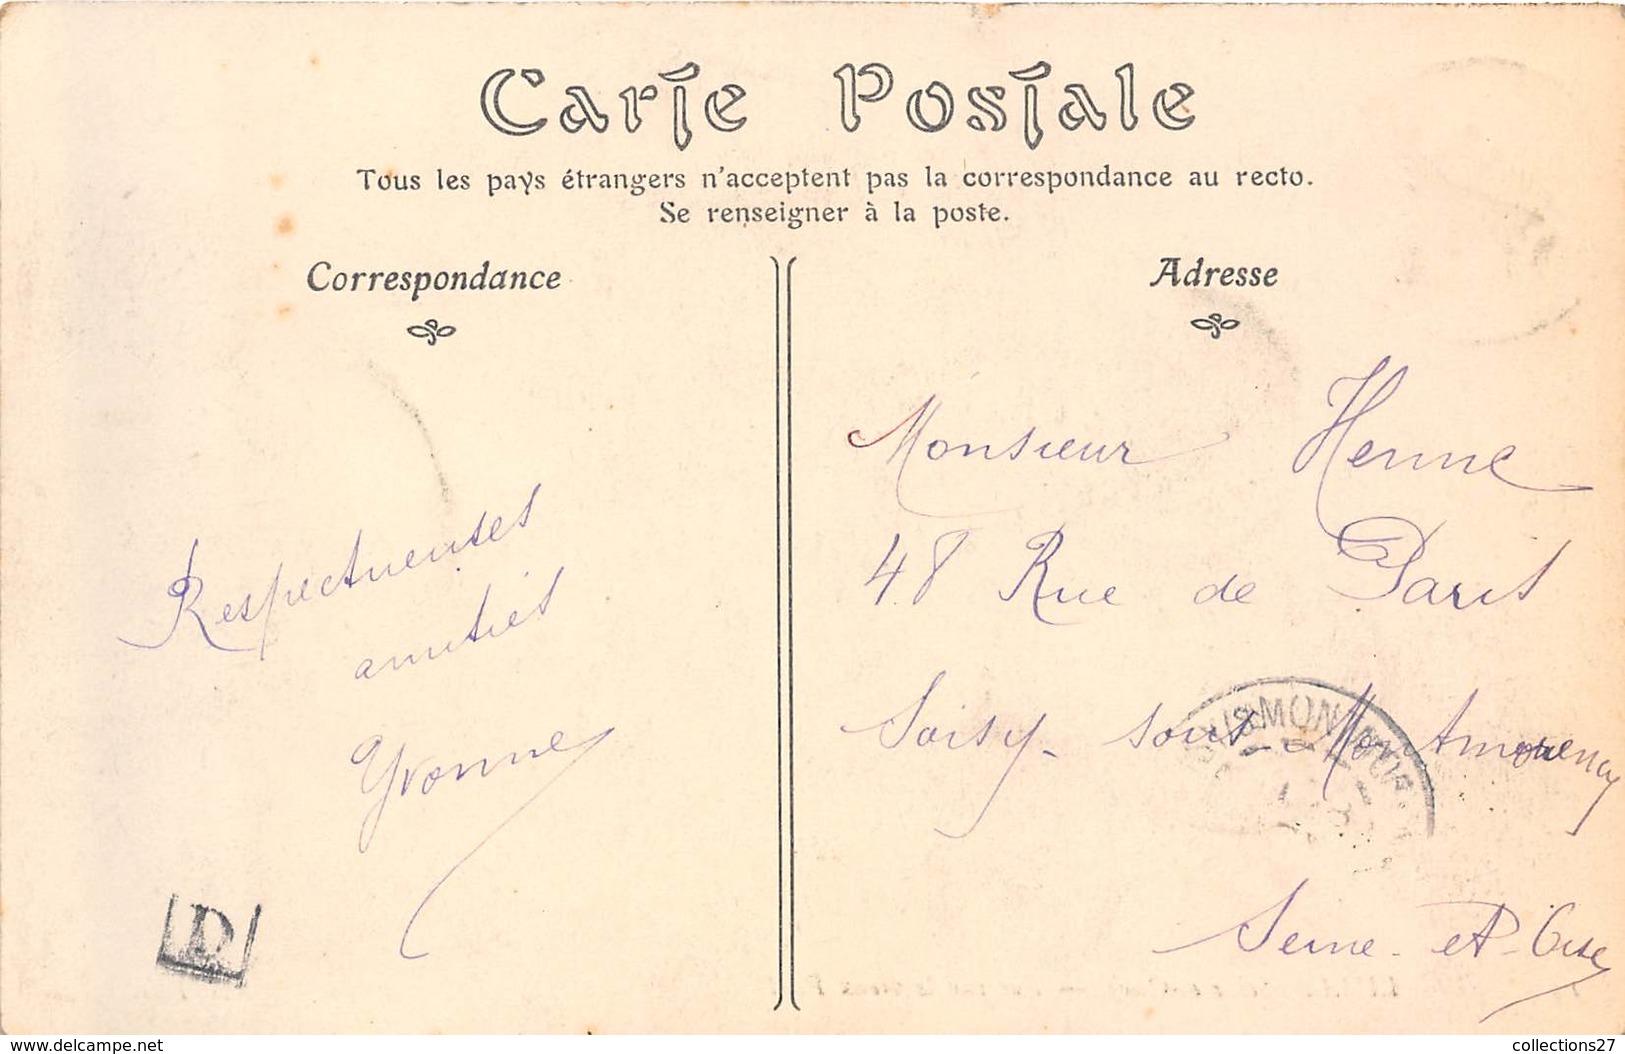 Carte Postale
Tous les pays étrangers n'acceptent pas la correspondance au recto.
Se renseigner à la poste.
Correspondance
Adresse
Respectueuses
amitiés
Yvonne
Monsieur Henne
48 Rue de Paris
Soisy-sous-Montmorency
Seine-et-Oise
D
delcampe.net
collections27